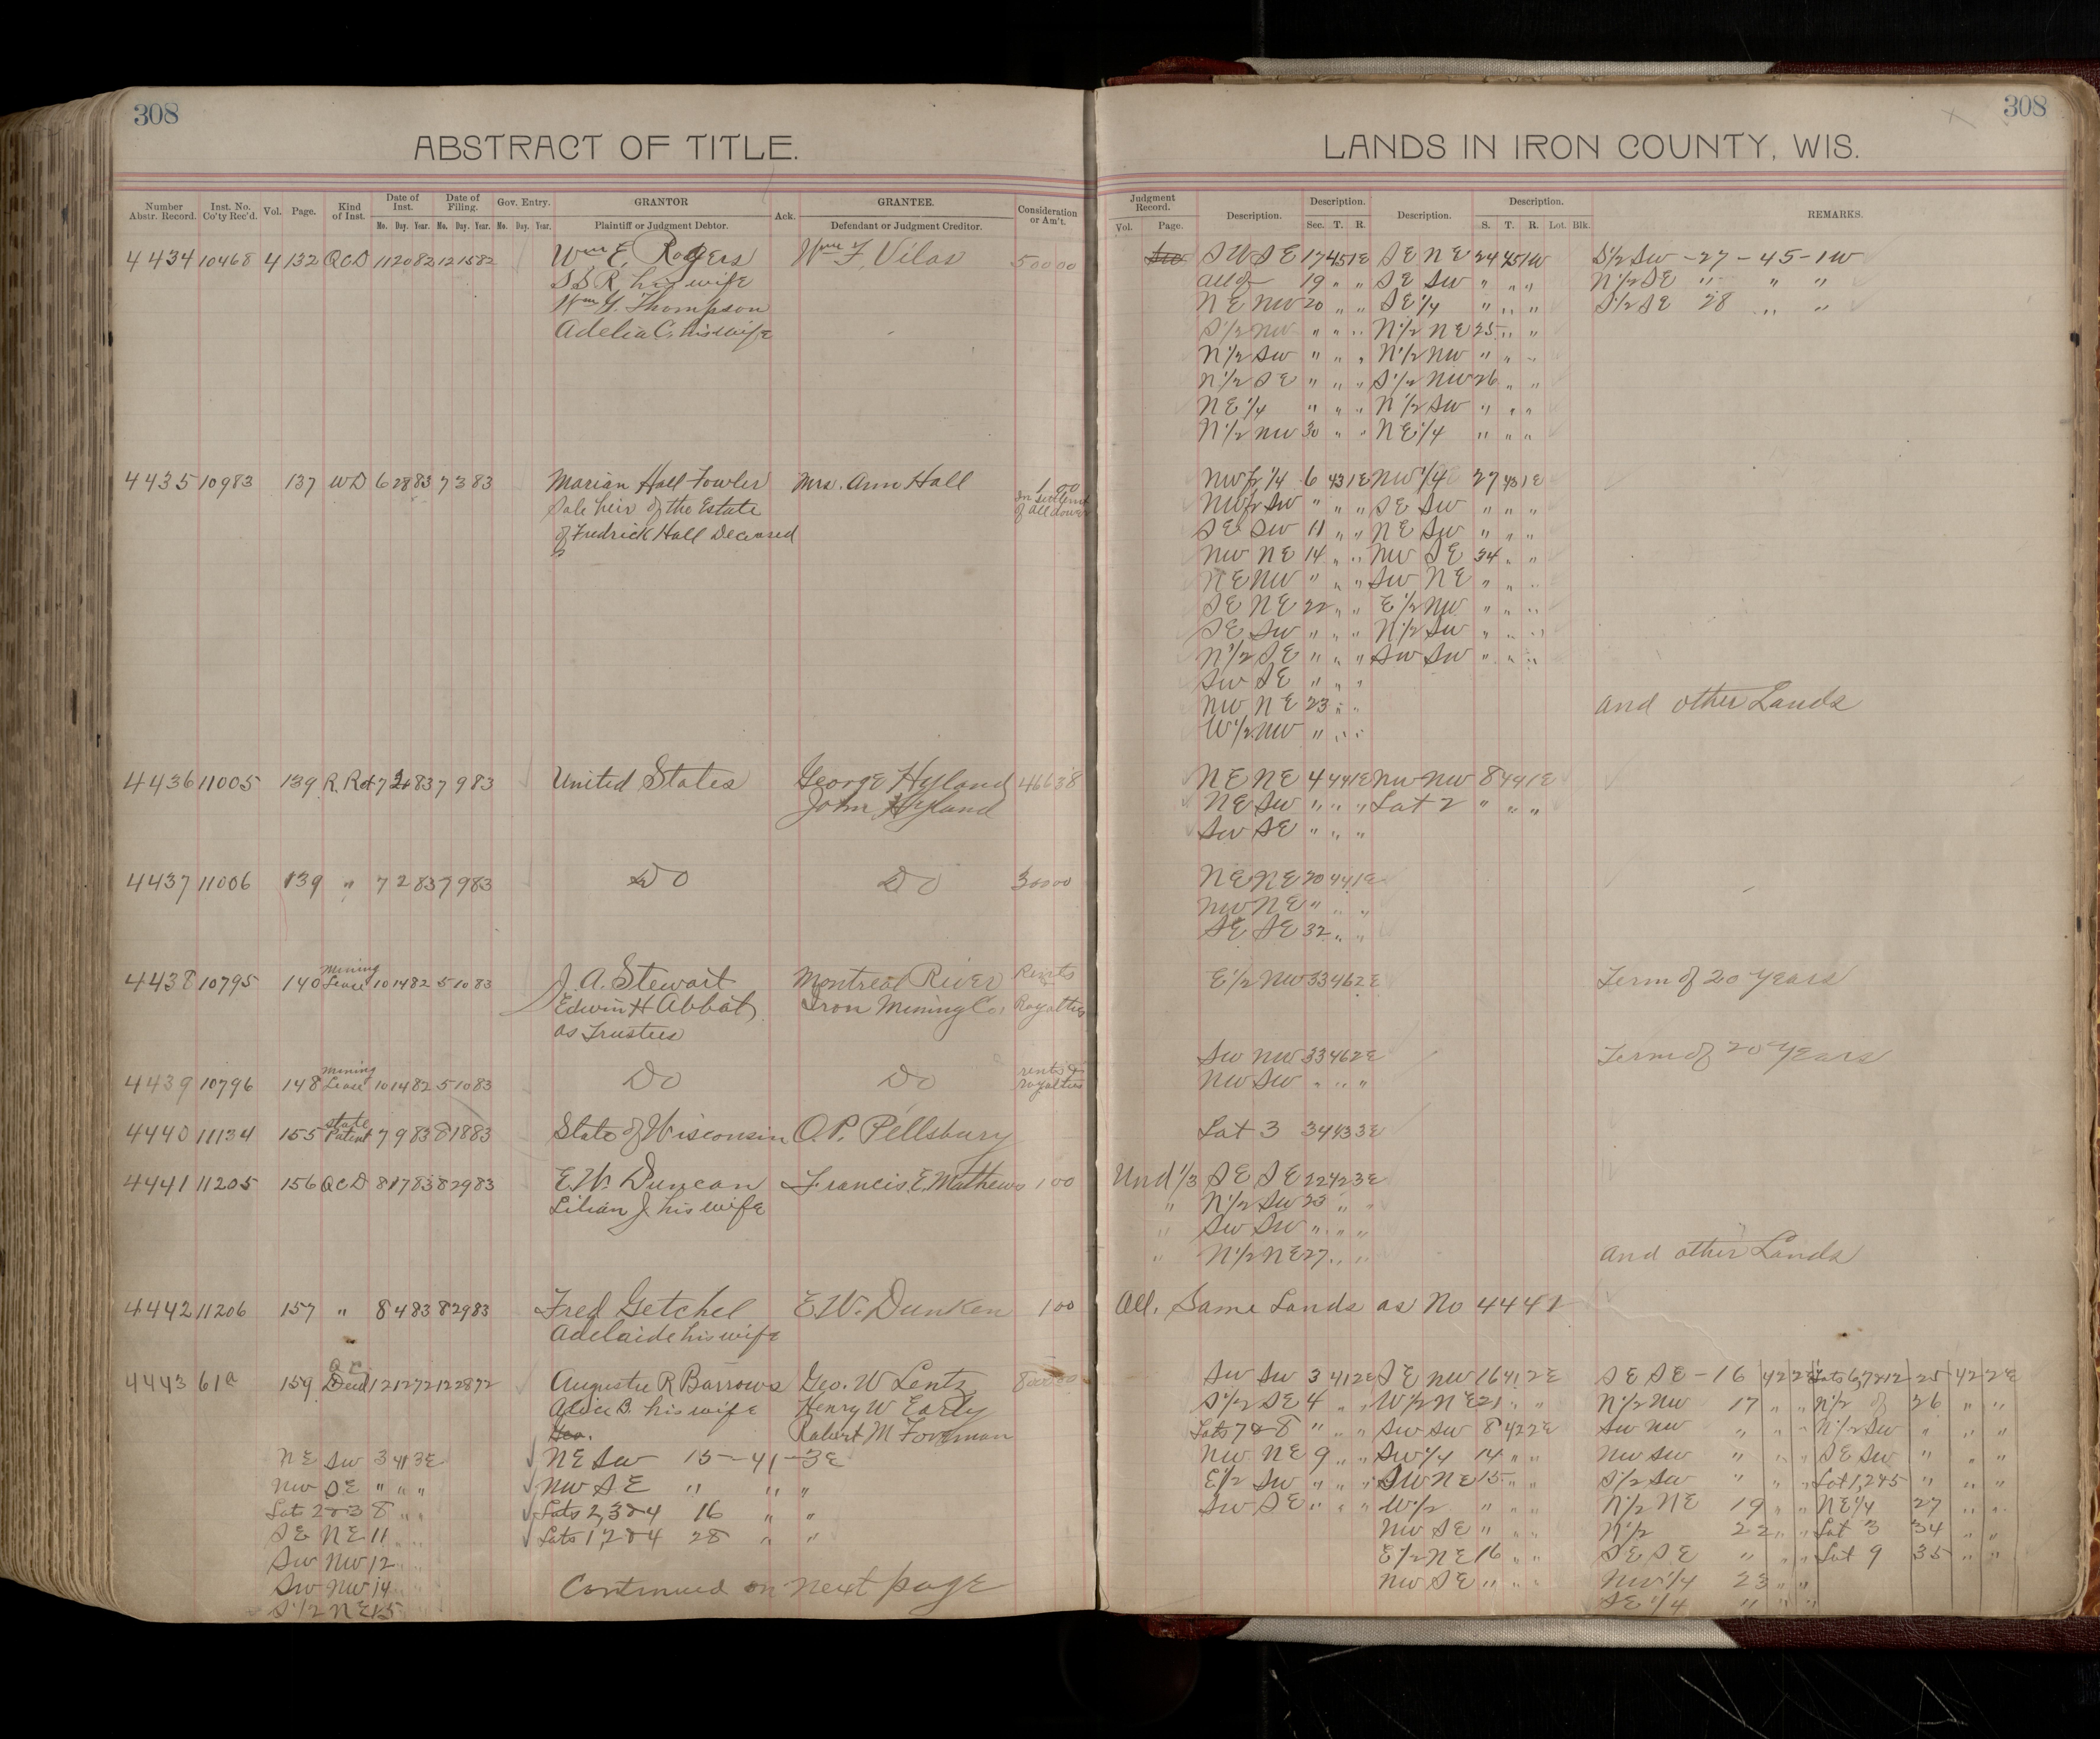 308
ABSTRACT OF TITLE.
Number Abstr. Record. Inst. No. Co'ty Rec'd. Vol. Page. Kind of Inst. Date of Inst. Date of Filing. Gov. Entry. GRANTOR Ack. GRANTEE. Consideration or Am't.
Mo. Day. Year. Mo. Day. Year. Mo. Day. Year. Plaintiff or Judgment Debtor. Defendant or Judgment Creditor.
4434 10468 4 132 QCD 11 20 82 12 15 82 Wm E. Rogers Wm F. Vilas 500 00
S S R, his wife
Wm Y. Thompson
Adelia C. his wife
4435 10983 137 WD 6 28 83 7 3 83 Marian Hall Fowler Mrs. Ann Hall 1.00
Sole heir of the Estate in settlemt
of Fredrick Hall Deceased of all dower
4436 11005 139 R Rct 7 2 83 7 9 83 United States George Hyland 466 38
John Hyland
4437 11006 139 " 7 2 83 7 9 83 DO DO 300 00
4438 10795 140 Mining Lease 10 14 82 5 10 83 J. A. Stewart Montreal River Rents
Edwin H Abbot, Iron Mining Co, Royalties
as Trustees
4439 10796 148 Mining Lease 10 14 82 5 10 83 DO DO rents & royalties
4440 11134 155 State Patent 7 9 83 8 18 83 State of Wisconsin O. P. Pillsbury
4441 11205 156 QCD 8 17 83 8 29 83 E. W. Duncan Francis E. Mathews 1 00
Lilian J. his wife
4442 11206 157 " 8 4 83 8 29 83 Fred Getchel E. W. Dunken 1 00
Adelaide his wife
4443 61a 159 Q C Deed 12 12 72 12 28 72 Augustu R Barrows Geo. W Lentz
Alice B. his wife Henry W Early
Geo. Robert M Foreman
NE SW 3 41 3E NE SW 15 - 41 - 3E
NW SE " " " NW SE " " "
Lot 2 & 3 8 " " Lots 2, 3 & 4 16 " "
SE NE 11 " " Lots 1, 2 & 4 28 " "
SW NW 12
SW NW 14 Continued on next page
S 1/2 NE 15
308
LANDS IN IRON COUNTY, WIS.
Judgment Record. Description. Description. Description. Description. REMARKS.
Vol. Page. Sec. T. R. S. T. R. Lot. Blk.
SW SE 17 45 1E SE NE 24 45 1W S 1/2 SW - 27 - 45 - 1W
all of 19 " " SE SW " " " N 1/2 SE " " "
NE NW 20 " " SE 1/4 " " " S 1/2 SE 28 " "
S 1/2 NW " " " N 1/2 NE 25 " "
N 1/2 SW " " " N 1/2 NW " " "
N 1/2 SE " " " S 1/2 NW 26 " "
NE 1/4 " " " N 1/2 SW " " "
N 1/2 NW 30 " " NE 1/4 " " "
NW fr 1/4 6 43 1E NW 1/4 27 43 1E
NW fr SW " " " SE SW " " "
SE SW 11 " " NE SW " " "
NW NE 14 " " NW SE 34 " "
NE NW " " " SW NE " " "
SE NE 22 " " E 1/2 NW " " "
SE SW " " " N 1/2 SW " " "
N 1/2 SE " " " SW SW " " "
SW SE " " "
NW NE 23 " " and other Lands
W 1/2 NW " " "
NE NE 4 44 1E NW NW 8 44 1E
NE SW " " " Lot 2 " " "
SW SE " " "
NE NE 20 44 1E
NW NE " " "
SE SE 32 " "
E 1/2 NW 33 46 2E Term of 20 Years
SW NW 33 46 2E Term of 20 Years
NW SW " " "
Lot 3 34 43 3E
Und 1/3 SE SE 22 42 3E
" N 1/2 SW 23 " "
" SW SW " " "
" N 1/2 NE 27 " " and other Lands
All. Same Lands as No 4441
SW SW 3 41 2E SE NW 16 41 2E SE SE - 16 42 2E Lots 6, 7 & 12 25 42 2E
S 1/2 SE 4 " " W 1/2 NE 21 " " N 1/2 NW 17 " " N 1/2 of 26 " "
Lots 7 & 8 " " " SW SW 8 42 2E SW NW " " " N 1/2 SW " " "
NW NE 9 " " SW 1/4 14 " " NW SW " " " SE SW " " "
E 1/2 SW " " " SW NE 15 " " S 1/2 SW " " " Lot 1, 2 & 5 " " "
SW SE " " " W 1/2 " " " N 1/2 NE 19 " " NE 1/4 27 " "
NW SE " " " N 1/2 22 " " Lot 3 34 " "
E 1/2 NE 16 " " SE SE " " " Lot 9 35 " "
NW SE " " " NW 1/4 23 " "
SE 1/4 " " "